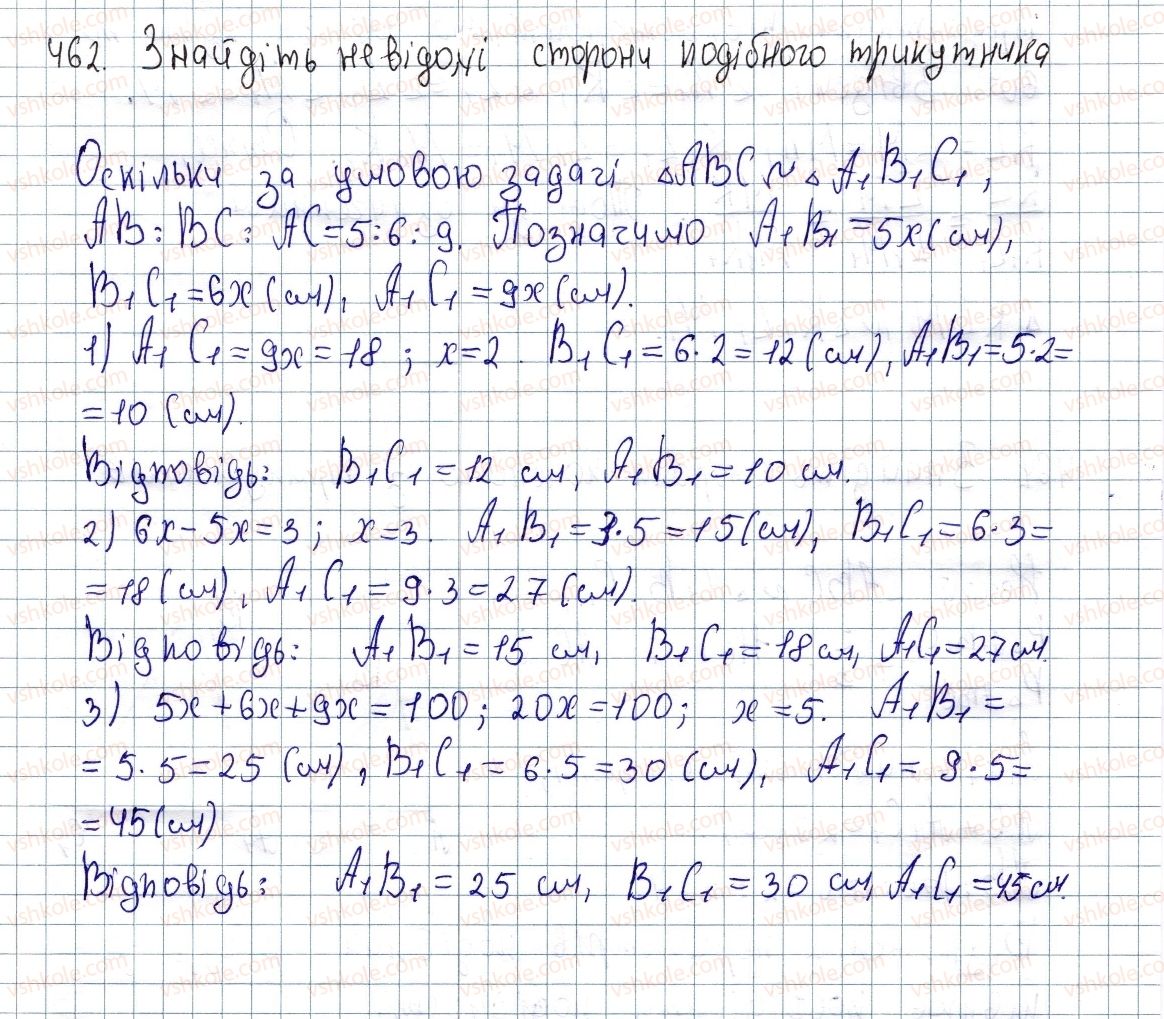 462. Знайдіть невідомі сторони подібного трикутника
Оскільки за умовою задачі △ABC ∾ △ A₁B₁C₁,
AB : BC : AC = 5 : 6 : 9. Позначимо A₁B₁ = 5x (см),
B₁C₁ = 6x (см), A₁C₁ = 9x (см).
1) A₁C₁ = 9x = 18 ; x = 2 . B₁C₁ = 6 · 2 = 12 (см), A₁B₁ = 5 · 2 =
= 10 (см).
Відповідь: B₁C₁ = 12 см, A₁B₁ = 10 см.
2) 6x - 5x = 3 ; x = 3 . A₁B₁ = 3 · 5 = 15 (см), B₁C₁ = 6 · 3 =
= 18 (см), A₁C₁ = 9 · 3 = 27 (см).
Відповідь: A₁B₁ = 15 см, B₁C₁ = 18 см, A₁C₁ = 27 см.
3) 5x + 6x + 9x = 100 ; 20x = 100 ; x = 5. A₁B₁ =
= 5 · 5 = 25 (см), B₁C₁ = 6 · 5 = 30 (см), A₁C₁ = 9 · 5 =
= 45 (см)
Відповідь: A₁B₁ = 25 см, B₁C₁ = 30 см, A₁C₁ = 45 см.